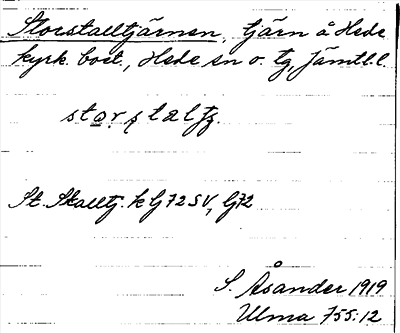 Storstalltjärnen, tjärn å Hede
kyrk. bost., Hede sn o. tg, Jämtl. l.
St. Stalltj. k lj 72 SV, lj 72
S. Åsander 1919
Ulma 755:12